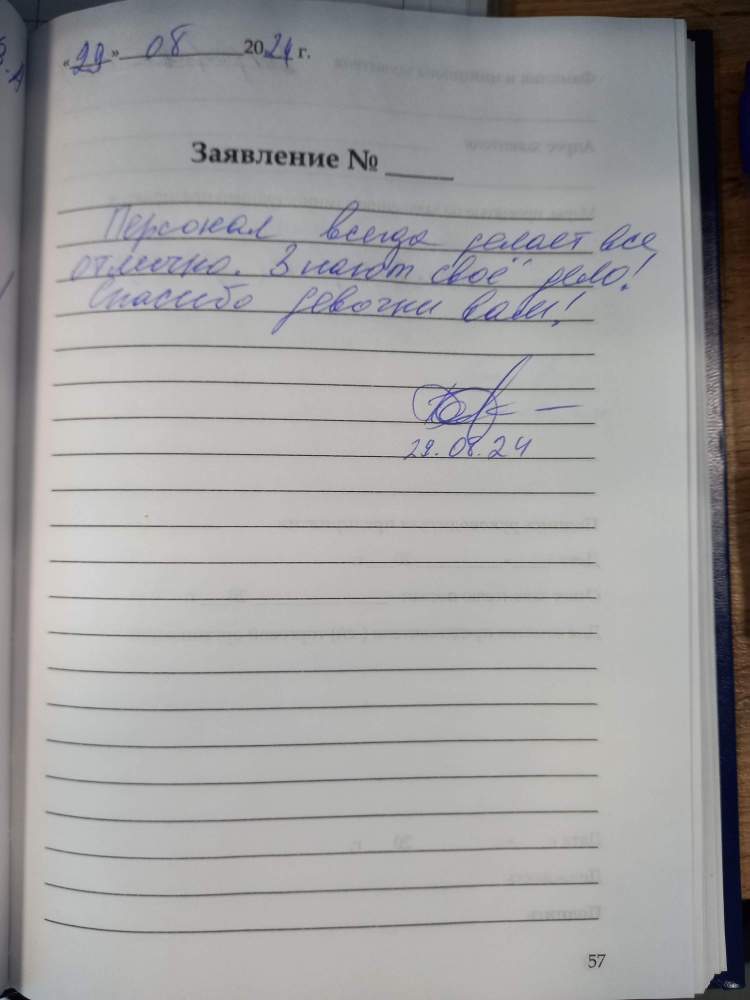 «29» 08 2024 г.
Заявление № _____
Персонал всегда делает все
отлично. Знают своё дело!
Спасибо девочки вам!
29.08.24
57